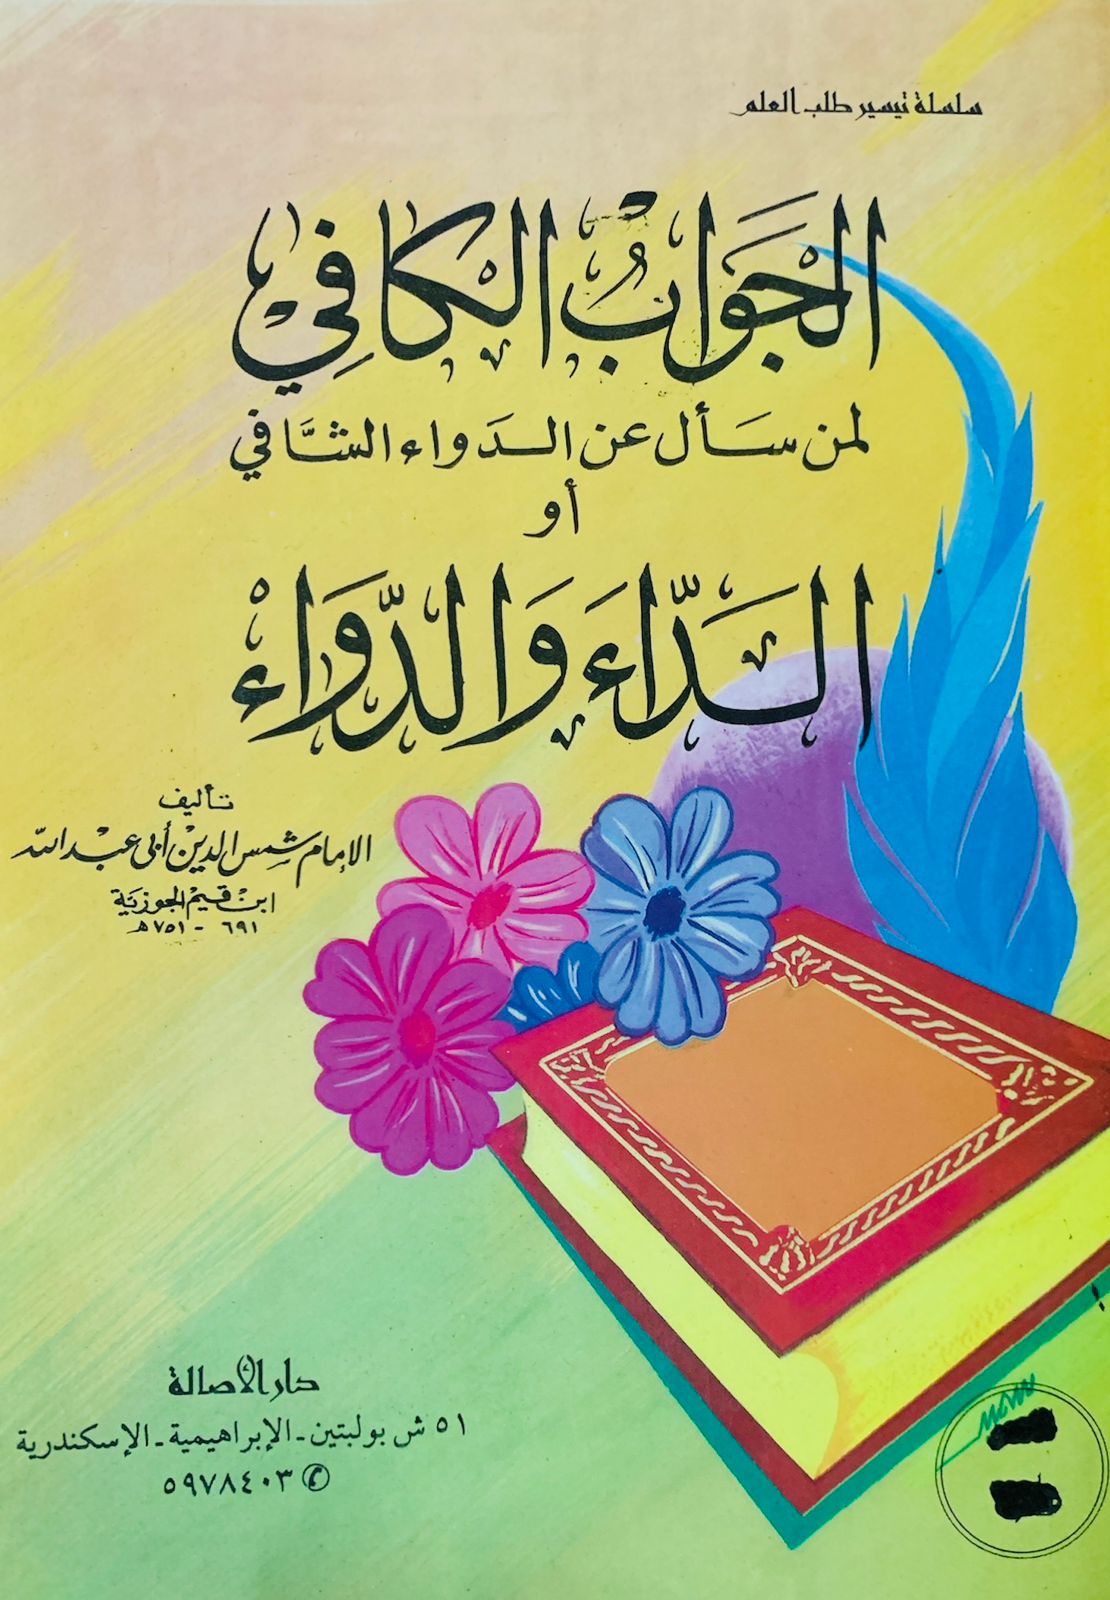 سلسلة تيسير طلب العلم
الجَوَابُ الكَافِي
لمن سَأل عن الدَواء الشَّافي
أو
الدَّاءَ وَالدّوَاءْ
تأليف
الإمام شمس الدين أبى عبد الله
ابن قيم الجوزية
٦٩١ - ٧٥١ هـ
دار الأصالة
٥١ ش بولبتين - الإبراهيمية - الإسكندرية
✆ ٥٩٧٨٤٠٣